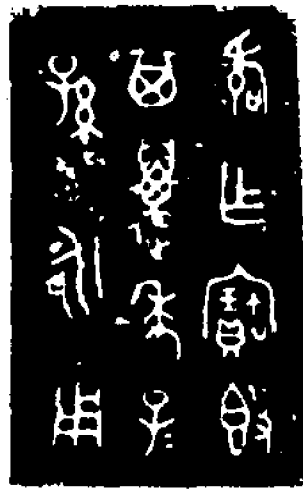 乍寶簋
其萬年子
孫永用